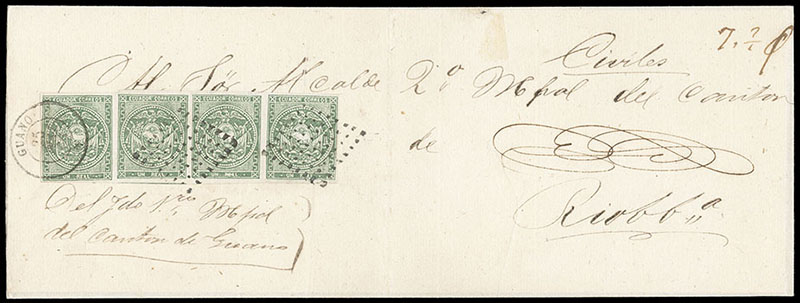 7. 7/1
Civiles
Al Sōr Alcalde 2º Mpal del Canton
de
Riobbª
ECUADOR CORREOS ECUADOR CORREOS ECUADOR CORREOS ECUADOR CORREOS
UN REAL UN REAL UN REAL UN REAL
GUANO
25
Del Jdo Mpal
del Canton de Guano